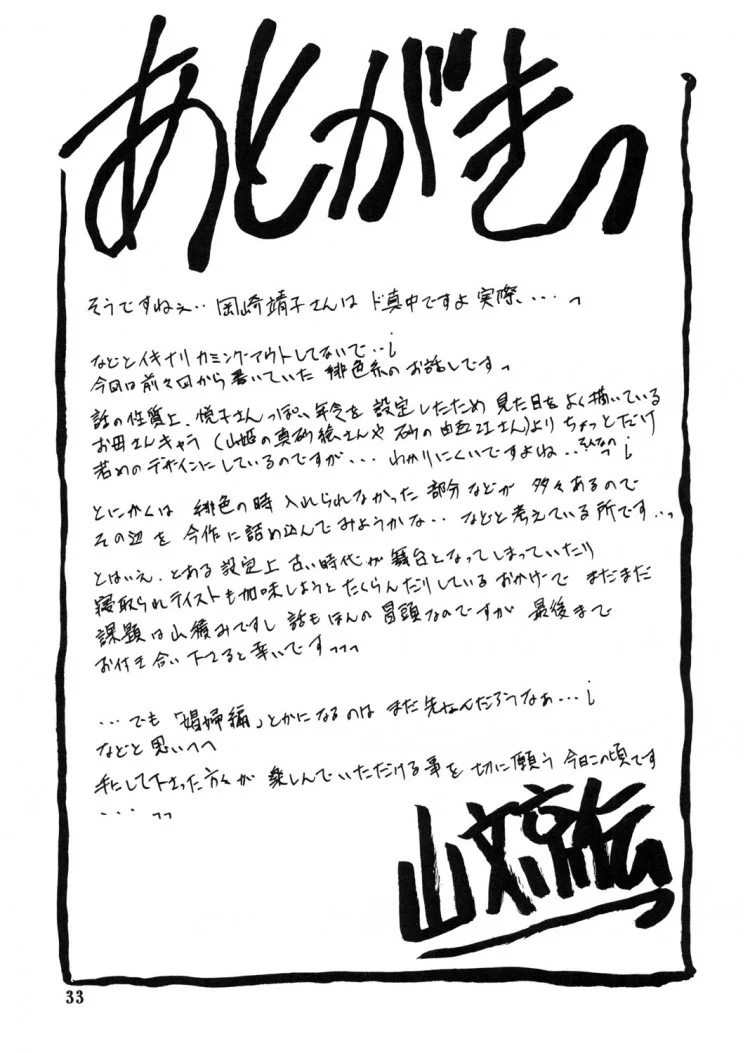 あとがきっ
そうですねぇ‥岡崎靖子さんは ド真中ですよ 実際‥‥っ
などとイキナリ カミングアウトしてないで‥¡
今回は前々回から書いていた 緋色糸のお話しですっ
話の性質上、悦子さんっぽい年令を 設定したため 見た目をよく描いている
お母さんキャラ (山姫の真砂穂さんや 砂の由西江さん)より ちょっとだけ
若めのデザインにしているのですが‥‥ わかりにくいですよねっ‥そんなの¡
とにかくは 緋色の時 入れられなかった 部分などが 多々あるので
その辺を 今作に詰め込んでみようかな‥ などと考えている所です‥っ
とはいえ、とある設定上 古い時代が舞台となってしまっていたり
寝取られテイストも加味しようと たくらんだりしているおかげで まだまだ
課題は山積みですし 話もほんの冒頭なのですが 最後まで
お付き合い下さると幸いですっっっ
‥‥でも「娼婦編」とかになるのは まだ先なんだろうなぁ‥‥¡
などと思いへへ
手にして下さった方々が 楽しんでいただける事を 切に願う 今日この頃です
‥‥っっ
山文京伝
33